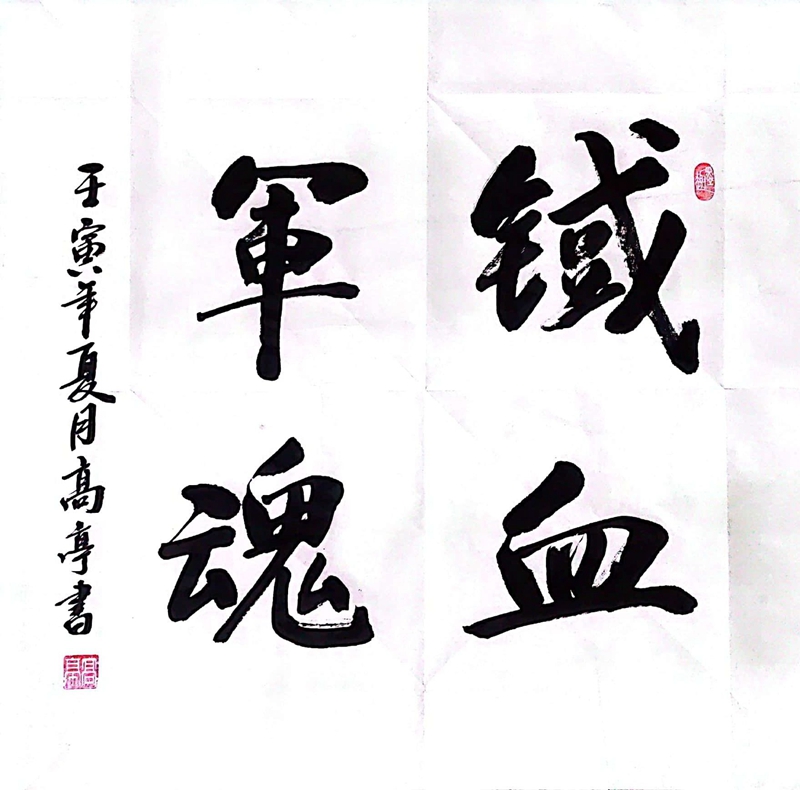 鐵血
軍魂
壬寅年夏月高亭書